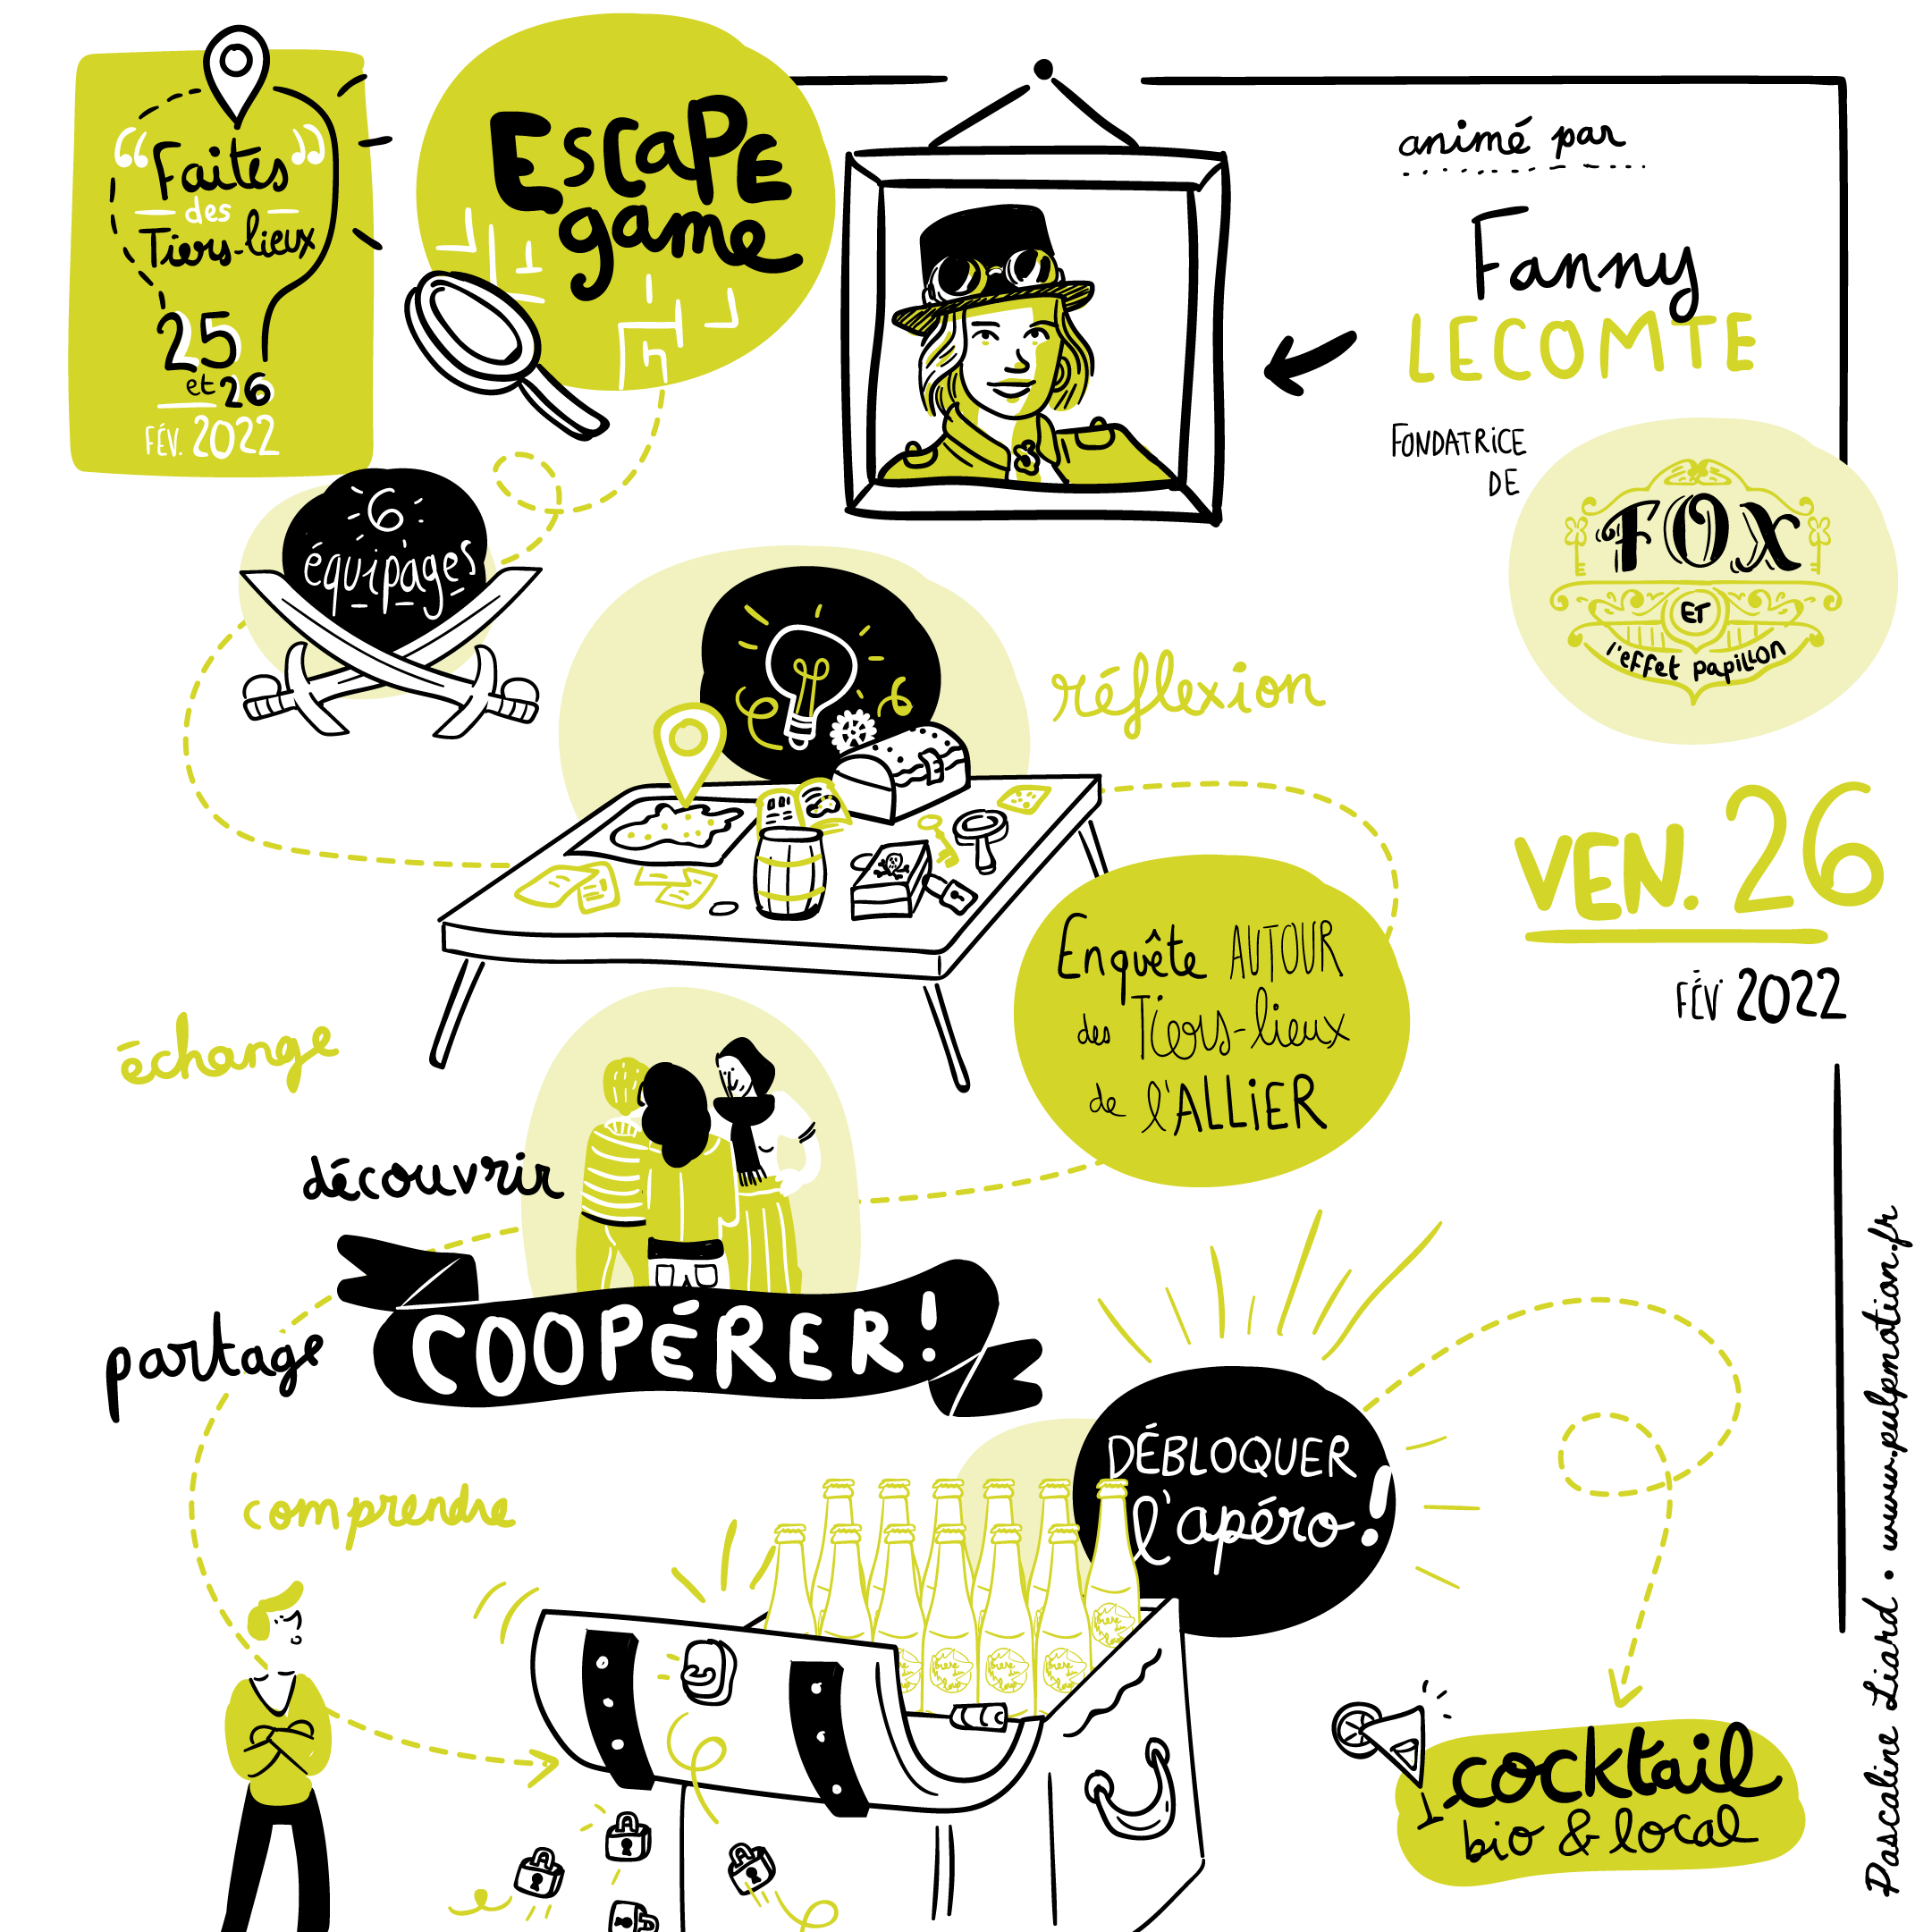 “Faites”
des
Tiers-lieux
25
et 26
FÉV. 2022
Escape
game
animé par
Fanny
LECOMTE
FONDATRICE
DE
FOX
ET
l'effet papillon
6
équipages
réflexion
VEN. 26
FÉV 2022
Enquête AUTOUR
des Tiers-lieux
de l'ALLiER
échange
découvrir
COOPÉRER!
partage
comprendre
DÉBLOQUER
l'apéro!
bière
du
loup
bière
du
loup
bière
du
loup
bière
du
loup
cocktail
bio & local
Pascaline Liard • www.pulpmotion.fr